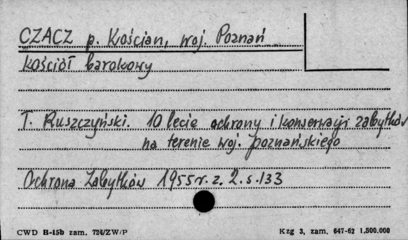 CZACZ p. Kościan, woj. Poznań
kościół barokowy
T. Ruszczyński. 10 lecie ochrony i konserwacji zabytków
na terenie woj. poznańskiego
Ochrona Zabytków 1955 r. z. 2. s. 133
CWD B-15b zam. 726/ZW/P Kzg 3, zam. 647-62 1,500.000